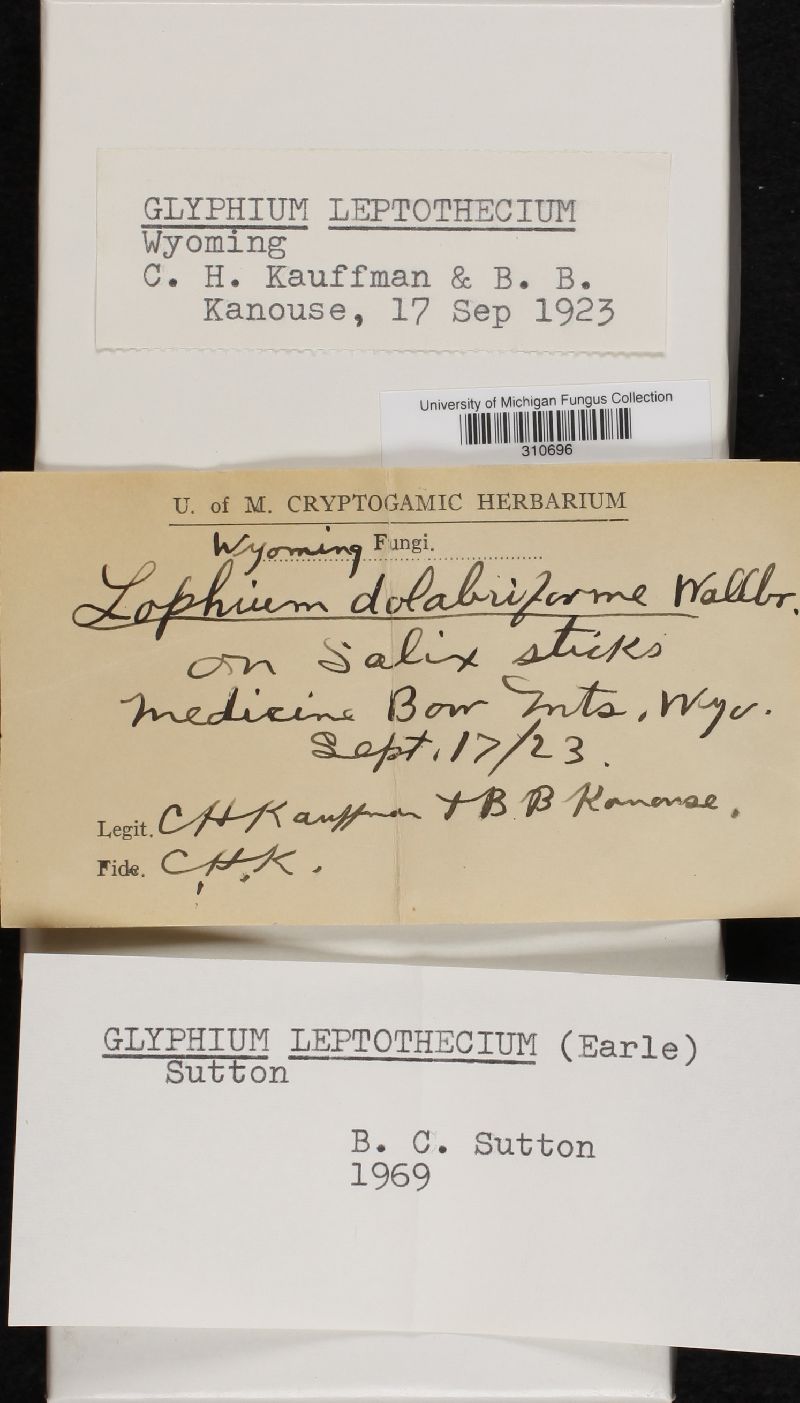 GLYPHIUM LEPTOTHECIUM
Wyoming
C. H. Kauffman & B. B.
Kanouse, 17 Sep 1923
University of Michigan Fungus Collection
310696
U. of M. CRYPTOGAMIC HERBARIUM
Wyoming Fungi.
Lophium dolabriforme Wallbr.
on Salix sticks
Medicine Bow Mts, Wyo.
Sept. 17/23.
Legit. CHKauffman + B B Kanouse.
Fide. C.H.K.
GLYPHIUM LEPTOTHECIUM (Earle)
Sutton
B. C. Sutton
1969